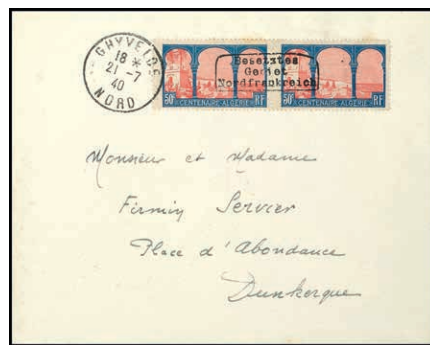 GHYVELDE
18 *
21 - 7
40
NORD
Besetztes
Gebiet
Nordfrankreich
50c CENTENAIRE ALGÉRIE RF
50c CENTENAIRE ALGÉRIE RF
Monsieur et Madame
Firmin Servier
Place d'Abondance
Dunkerque